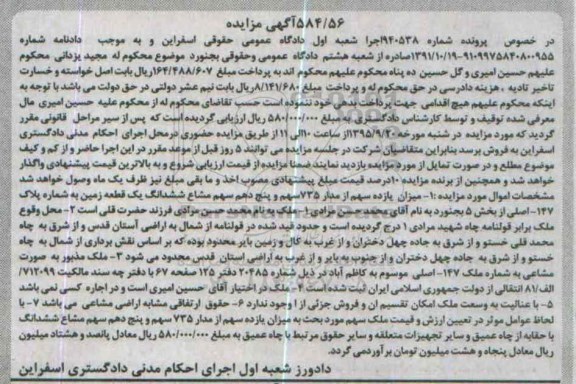 ۵۸۴/۵۶آگهی مزایده
در خصوص پرونده شماره ۹۴۰۵۳۸اجرا شعبه اول دادگاه عمومی حقوقی اسفراین و به موجب دادنامه شماره
۹۱۰۹۹۷۵۸۴۰۸۰۰۹۵۵-۱۳۹۱/۱۰/۱۹صادره از شعبه هشتم دادگاه عمومی وحقوقی بجنورد موضوع محکوم له مجید یزدانی محکوم
علیهم حسین امیری و گل حسین ده پناه محکوم علیهم محکوم اند به پرداخت مبلغ ۱۶۴/۴۸۸/۶۰۷ریال بابت اصل خواسته و خسارت
تاخیر تادیه ، هزینه دادرسی در حق محکوم له و پرداخت مبلغ ۸/۱۴۱/۶۸۰ریال بابت نیم عشر دولتی در حق دولت می باشد با توجه به
اینکه محکوم علیهم هیچ اقدامی جهت پرداخت بدهی خود ننموده است حسب تقاضای محکوم له از محکوم علیه حسین امیری مال
معرفی شده توقیف و توسط کارشناس دادگستری به مبلغ ۵۸۰/۰۰۰/۰۰۰ ریال ارزیابی گردیده است که پس از سیر مراحل قانونی مقرر
گردید که مورد مزایده در شنبه مورخه ۱۳۹۵/۹/۲۰از ساعت ۱۰الی ۱۱ از طریق مزایده حضوری درمحل اجرای احکام مدنی دادگستری
اسفراین به فروش برسد بنابراین متقاضیان شرکت در جلسه مزایده می توانند ۵ روز قبل از موعد مقرر در این اجرا حاضر و از کم و کیف
موضوع مطلع و در صورت تمایل از مورد مزایده بازدید نمایند ضمنا مزایده از قیمت ارزیابی شروع و به بالاترین قیمت پیشنهادی واگذار
خواهد شد و همچنین از برنده مزایده ۱۰درصد قیمت مبلغ پیشنهادی مصوب اخذ و ما بقی مبلغ نیز ظرف یک ماه وصول خواهد شد
مشخصات اموال مورد مزایده :۱- میزان یازده سهم از مدار ۷۳۵سهم و پنج دهم سهم مشاع ششدانگ یک قطعه زمین به شماره پلاک
۱۴۷- اصلی از بخش ۵ بجنورد به نام آقای محمد حسن مرادی ۱- ملک به نام محمد حسن مرادی فرزند حضرت قلی است ۲- محل وقوع
ملک برابر قولنامه چاه شهید مرادی ۱ درج گردیده است و حدود قید شده در قولنامه از شمال به اراضی آستان قدس و از شرق به چاه
محمد قلی خستو و از شرق به جاده چهل دختران و از غرب به کال و زمین بایر محدود بوده که بر اساس نقش برداری از شمال به چاه
خستو و از شرق به جاده چهل دختران و از جنوب به بایر و از غرب به اراضی آستان قدس محدود می شود ۳- ملک مذبور به صورت
مشاعی به شماره ملک ۱۴۷- اصلی موسوم به کاظم آباد در ذیل شماره ۲۰۴۸۵ دفتر ۱۲۵ صفحه ۶۷ با دفتر چه سند مالکیت ۷۱۲۰۹۹/
الف/۸۱ انتقالی از دولت جمهوری اسلامی ایران ثبت شده است ۴- ملک در اختیار آقای حسین امیری است و در اجاره کسی نمی باشد
۵- با عنالیت به وسعت ملک امکان تقسیم آن و فروش جزئی از آن وجود ندارد ۶- حقوق ارتفاقی مشابه اراضی مشاعی می باشد ۷- با
لحاظ عوامل موثر در تعیین ارزش و قیمت ملک سهم مورد بحث به میزان یازده سهم از مدار ۷۳۵ سهم و پنج دهم سهم مشاع ششدانگ
با حقابه از چاه عمیق و سایر تجهیزات متعلقه و سایر حقوق مرتبط با چاه عمیق به مبلغ ۵۸۰/۰۰۰/۰۰۰ ریال معادل پانصد و هشتاد میلیون
ریال معادل پنجاه و هشت میلیون تومان بر آوردمی گردد.
دادورز شعبه اول اجرای احکام مدنی دادگستری اسفراین